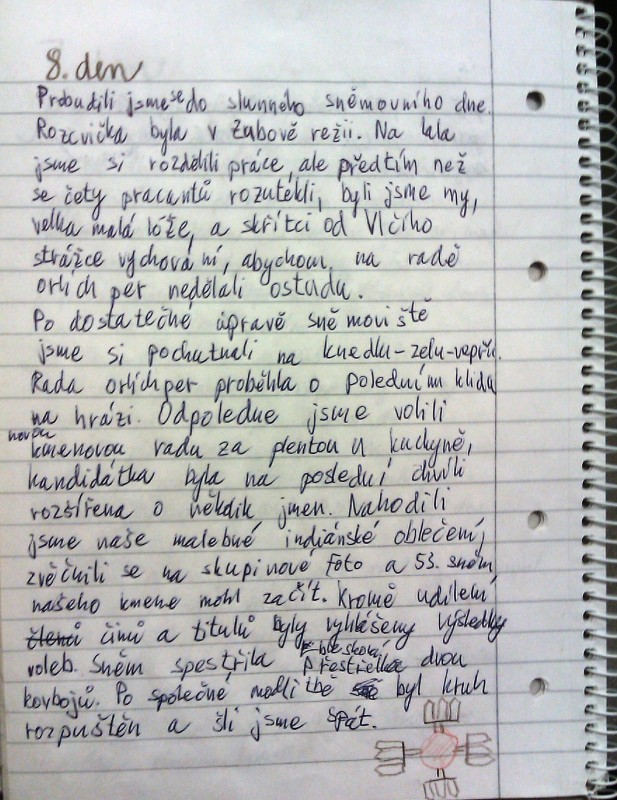 8. den
Probudili jsme se do slunného sněmovního dne.
Rozcvička byla v Zubově režii. Na lala
jsme si rozdělili práce, ale předtím než
se čety pracantů rozutekli, byli jsme my,
velka malá lóže, a skřítci od Vlčího
strážce vychováni, abychom na radě
orlích per nedělali ostudu.
Po dostatečné úpravě sněmoviště
jsme si pochutnali na knedlu-zelu-vepřu.
Rada orlích per proběhla o poledním klidu
na hrázi. Odpoledne jsme volili
novou
kmenovou radu za plentou u kuchyně,
kandidátka byla na poslední chvíli
rozšířena o několik jmen. Nahodili
jsme naše malebné indiánské oblečení,
zvěčnili se na skupinové foto a 53. sněm
našeho kmene mohl začít. Kromě udílení
členů činů a titulů byly vyhlášeny výsledky
voleb. Sněm spestřila blesková přestřelka dvou
kovbojů. Po společné modlitbě byl kruh
rozpuštěn a šli jsme spát.